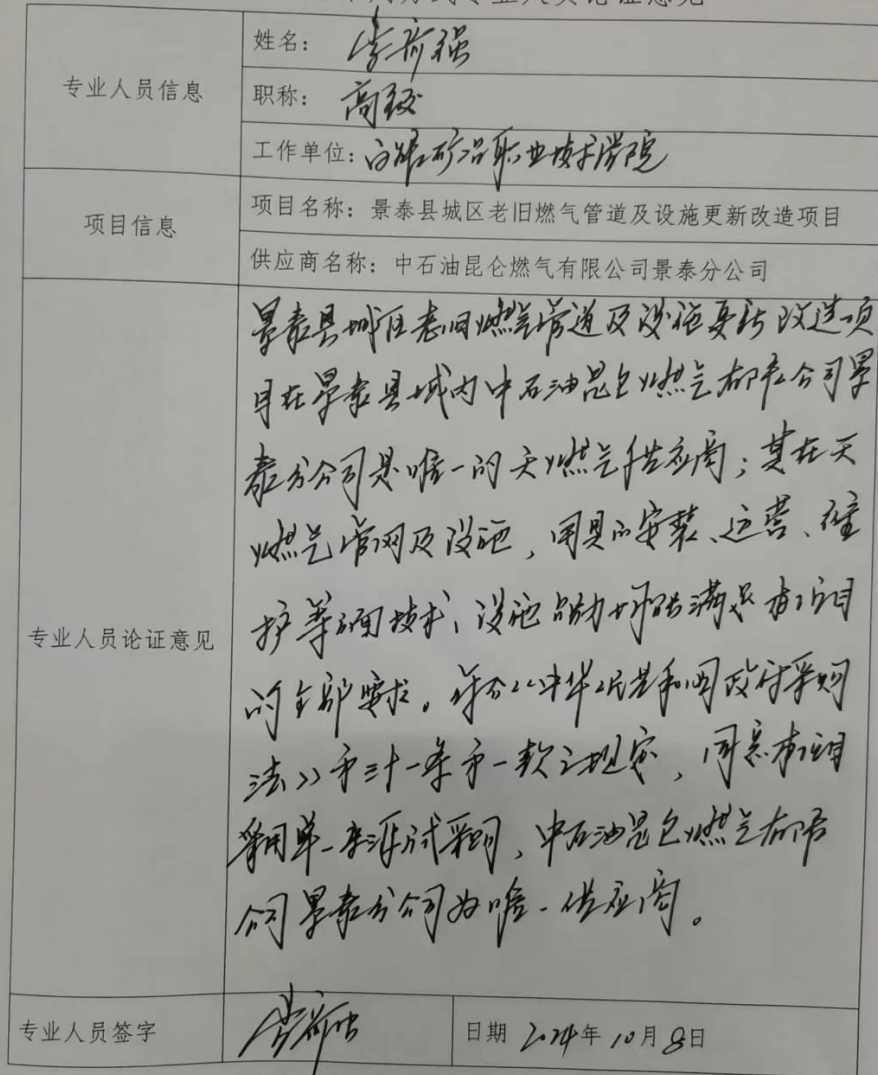 专业人员论证意见
专业人员信息
姓名：
职称：高级
工作单位：白银矿冶职业技术学院
项目信息
项目名称：景泰县城区老旧燃气管道及设施更新改造项目
供应商名称：中石油昆仑燃气有限公司景泰分公司
专业人员论证意见
景泰县城区老旧燃气管道及设施更新改造项
目在景泰县域内中石油昆仑燃气有限公司景
泰分公司是唯一的天燃气供应商；其在天
燃气管网及设施、用具的安装、运营、维
护等方面技术、设施能力均能满足本项目
的全部要求。符合《中华人民共和国政府采购
法》第三十一条第一款之规定，同意本项目
采用单一来源方式采购，中石油昆仑燃气有限
公司景泰分公司为唯一供应商。
专业人员签字
日期 2024年10月8日